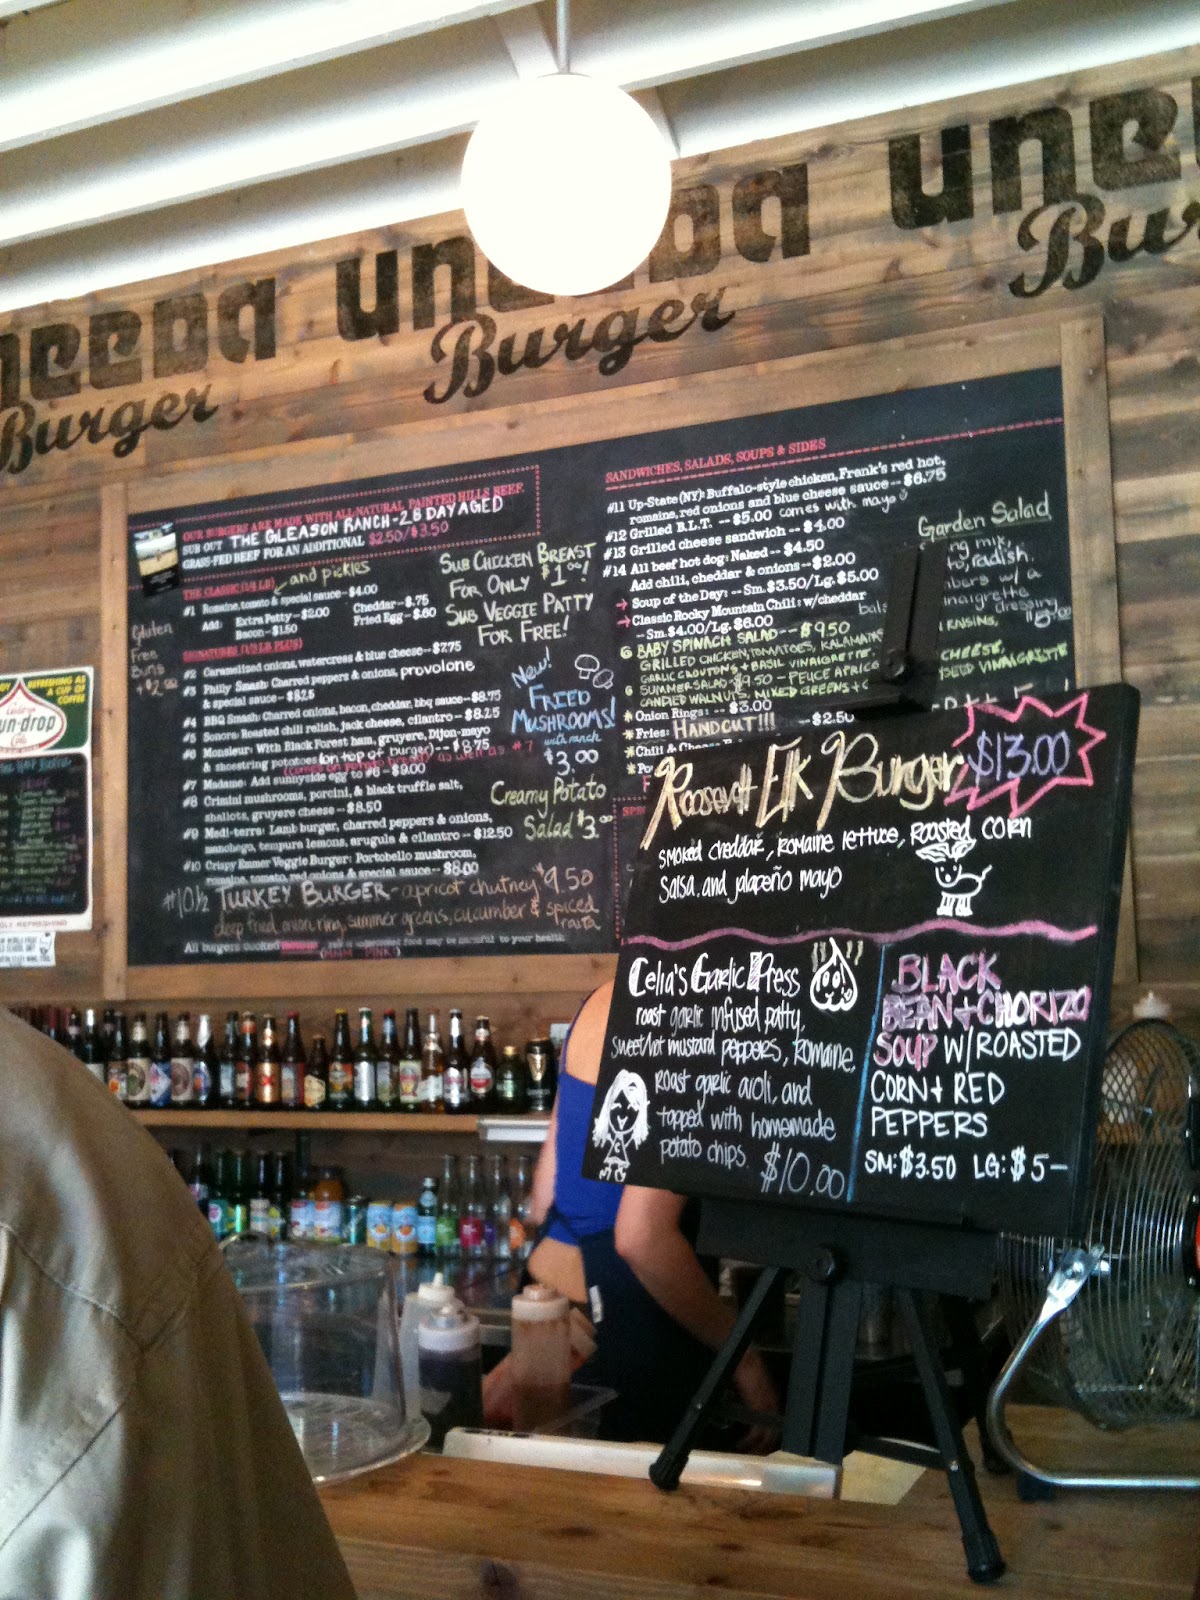 neeba
Burger
uneeda
Burger
une
Bur
OUR BURGERS ARE MADE WITH ALL-NATURAL PAINTED HILLS BEEF.
SUB OUT THE GLEASON RANCH - 28 DAY AGED
GRASS-FED BEEF FOR AN ADDITIONAL $2.50/$3.50
THE CLASSIC (1/4 LB) and pickles
#1 Romaine, tomato & special sauce -- $4.00
Add: Extra Patty -- $2.00 Cheddar -- $.75
Bacon -- $1.50 Fried Egg -- $.60
Gluten
Free
Buns
+ $2.00
SUB CHICKEN BREAST
FOR ONLY $1.00!
SUB VEGGIE PATTY
FOR FREE!
SIGNATURES (1/3 LB PLUS)
#2 Caramelized onions, watercress & blue cheese -- $7.75
#3 Philly Smash: Charred peppers & onions, provolone
& special sauce -- $8.25
#4 BBQ Smash: Charred onions, bacon, cheddar, bbq sauce -- $8.75
#5 Sonora: Roasted chili relish, jack cheese, cilantro -- $8.25
#6 Monsieur: With Black Forest ham, gruyere, Dijon-mayo
& shoestring potatoes (on top of burger) -- $8.75
(comes on potato bread) as well as #7
#7 Madame: Add sunnyside egg to #6 -- $9.00
#8 Crimini mushrooms, porcini, & black truffle salt,
shallots, gruyere cheese -- $8.50
#9 Medi-terra: Lamb burger, charred peppers & onions,
manchego, tempura lemons, arugula & cilantro -- $12.50
#10 Crispy Emmer Veggie Burger: Portobello mushroom,
romaine, tomato, red onions & special sauce -- $8.00
#10 1/2 TURKEY BURGER - apricot chutney $9.50
deep fried onion ring, summer greens, cucumber & spiced
raita
All burgers cooked
food may be harmful to your health
(MMM PINK)
New!
FRIED
MUSHROOMS!
with ranch
$3.00
Creamy Potato
Salad $3.00
SANDWICHES, SALADS, SOUPS & SIDES
#11 Up-State (NY) Buffalo-style chicken, Frank's red hot,
romaine, red onions and blue cheese sauce -- $6.75
#12 Grilled B.L.T. -- $5.00 comes with mayo
#13 Grilled cheese sandwich -- $4.00
#14 All beef hot dog: Naked -- $4.50
Add chili, cheddar & onions -- $2.00
→ Soup of the Day: -- Sm. $3.50/Lg. $5.00
→ Classic Rocky Mountain Chili: w/cheddar
-- Sm. $4.00/Lg. $6.00
G BABY SPINACH SALAD -- $9.50
GRILLED CHICKEN, TOMATOES, KALAMATA
GARLIC CROUTONS + BASIL VINAIGRETTE
G SUMMER SALAD - $9.50 -
CANDIED WALNUTS, MIXED GREENS +
* Onion Rings: -- $3.00
* Fries: HANDCUT!!! -- $2.50
* Chili & Cheese
Garden Salad
mix,
radish.
w/ a
vinaigrette
dressing
$5.00
RAISINS,
CHEESE,
VINAIGRETTE
REFRESHING AS
A CUP OF
COFFEE
un-drop
Roosevelt Elk Burger $13.00
smoked cheddar, romaine lettuce, roasted corn
salsa. and jalapeño mayo
Celia's Garlic Press
roast garlic infused patty,
sweet hot mustard peppers, romaine,
roast garlic aioli, and
topped with homemade
potato chips.
$10.00
BLACK
BEAN + CHORIZO
SOUP W/ ROASTED
CORN + RED
PEPPERS
SM: $3.50 LG: $5-